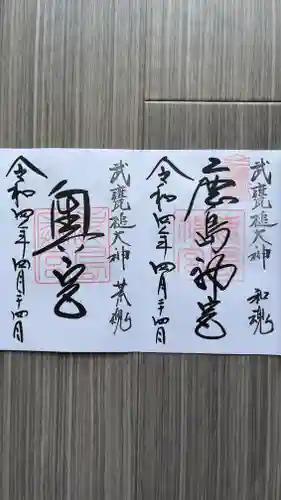 武甕槌大神 和魂
鹿島神宮
令和四年四月二十四日
武甕槌大神 荒魂
奥宮
令和四年四月二十四日